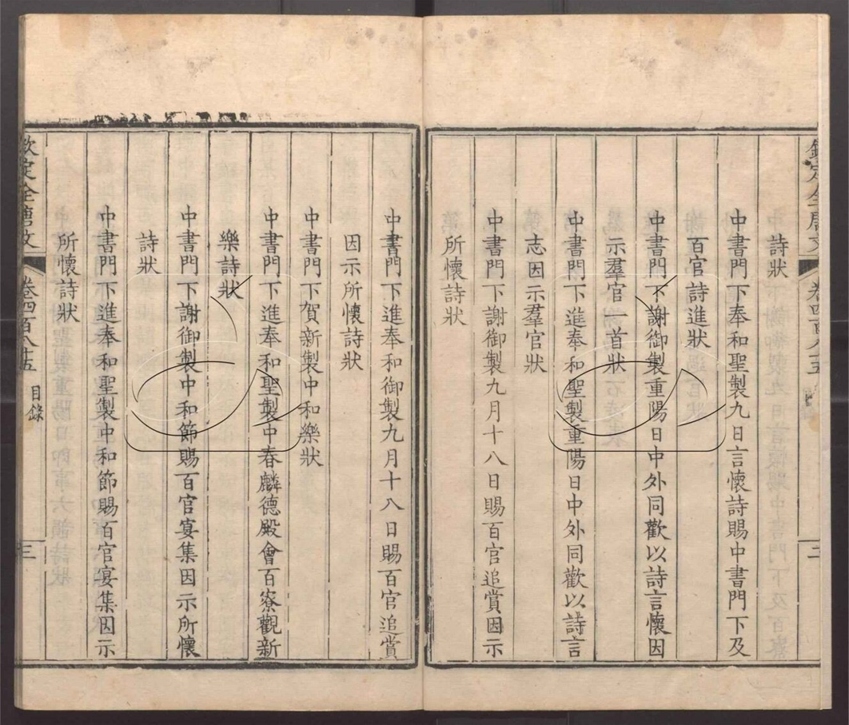 詩狀
中書門下奉和聖製九日言懷詩賜中書門下及
百官詩進狀
中書門下謝御製重陽日中外同歡以詩言懷因
示羣官一首狀
中書門下進奉和聖製重陽日中外同歡以詩言
志因示羣官狀
中書門下謝御製九月十八日賜百官追賞因示
所懷詩狀
中書門下進奉和御製九月十八日賜百官追賞
因示所懷詩狀
中書門下賀新製中和樂狀
中書門下進奉和聖製中春麟德殿會百寮觀新
樂詩狀
中書門下謝御製中和節賜百官宴集因示所懷
詩狀
中書門下進奉和聖製中和節賜百官宴集因示
所懷詩狀
欽定全唐文
卷四百八十五
目錄
三